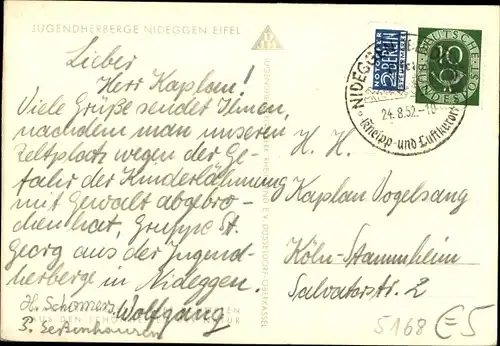 JUGENDHERBERGE NIDEGGEN EIFEL
Lieber
Herr Kaplan!
Viele Grüße sendet Ihnen,
nachdem man unseren
Zeltplatz wegen der Ge-
fahr der Kinderlähmung
mit Gewalt abgebro-
chen hat, Gruppe St.
Georg aus der Jugend-
herberge in Nideggen.
H. Schomers Wolfgang
NOTOPFER
2 BERLIN
STEUERMARKE
DEUTSCHE
BUNDESPOST
NIDEGGEN
24.8.52.-10
Kneipp- und Luftkurort
H. H.
Kaplan Vogelsang
Köln-Stammheim
Salvatorstr. 2
5168 E5